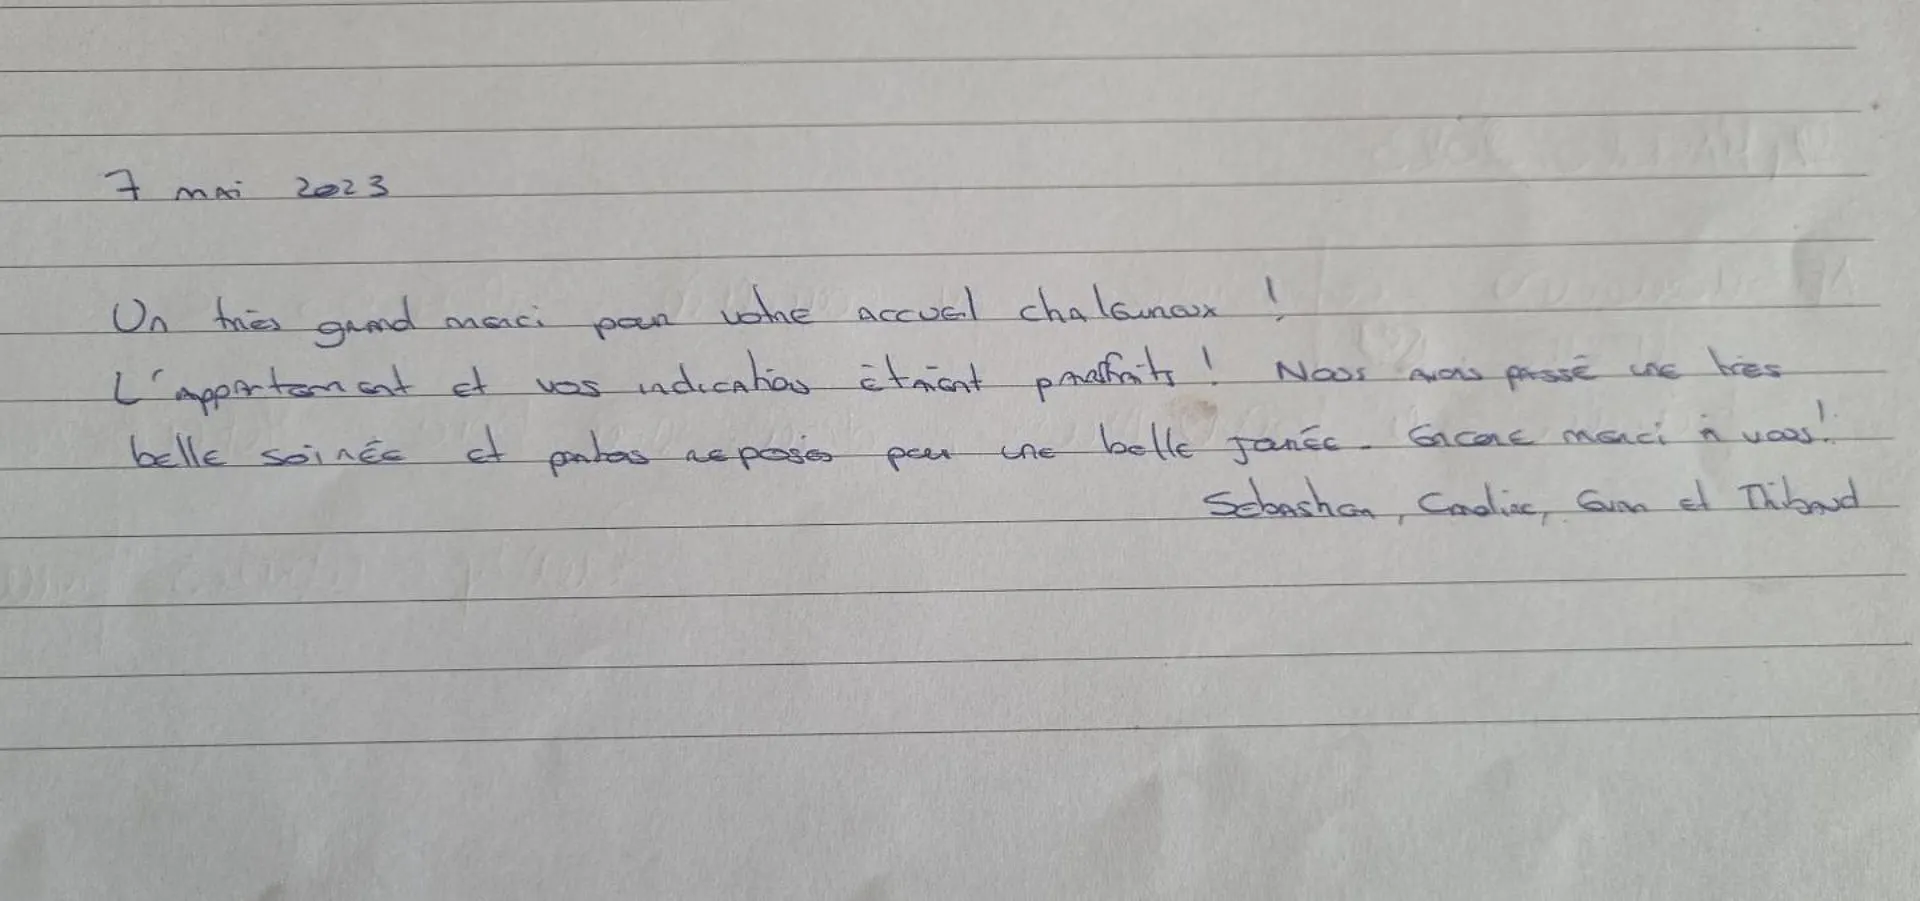 7 mai 2023
Un très grand merci pour votre accueil chaleureux !
L'appartement et vos indications étaient parfaits ! Nous avons passé une très
belle soirée et partons reposés pour une belle journée. Encore merci à vous !
Sebastian, Caroline, et Thibaud